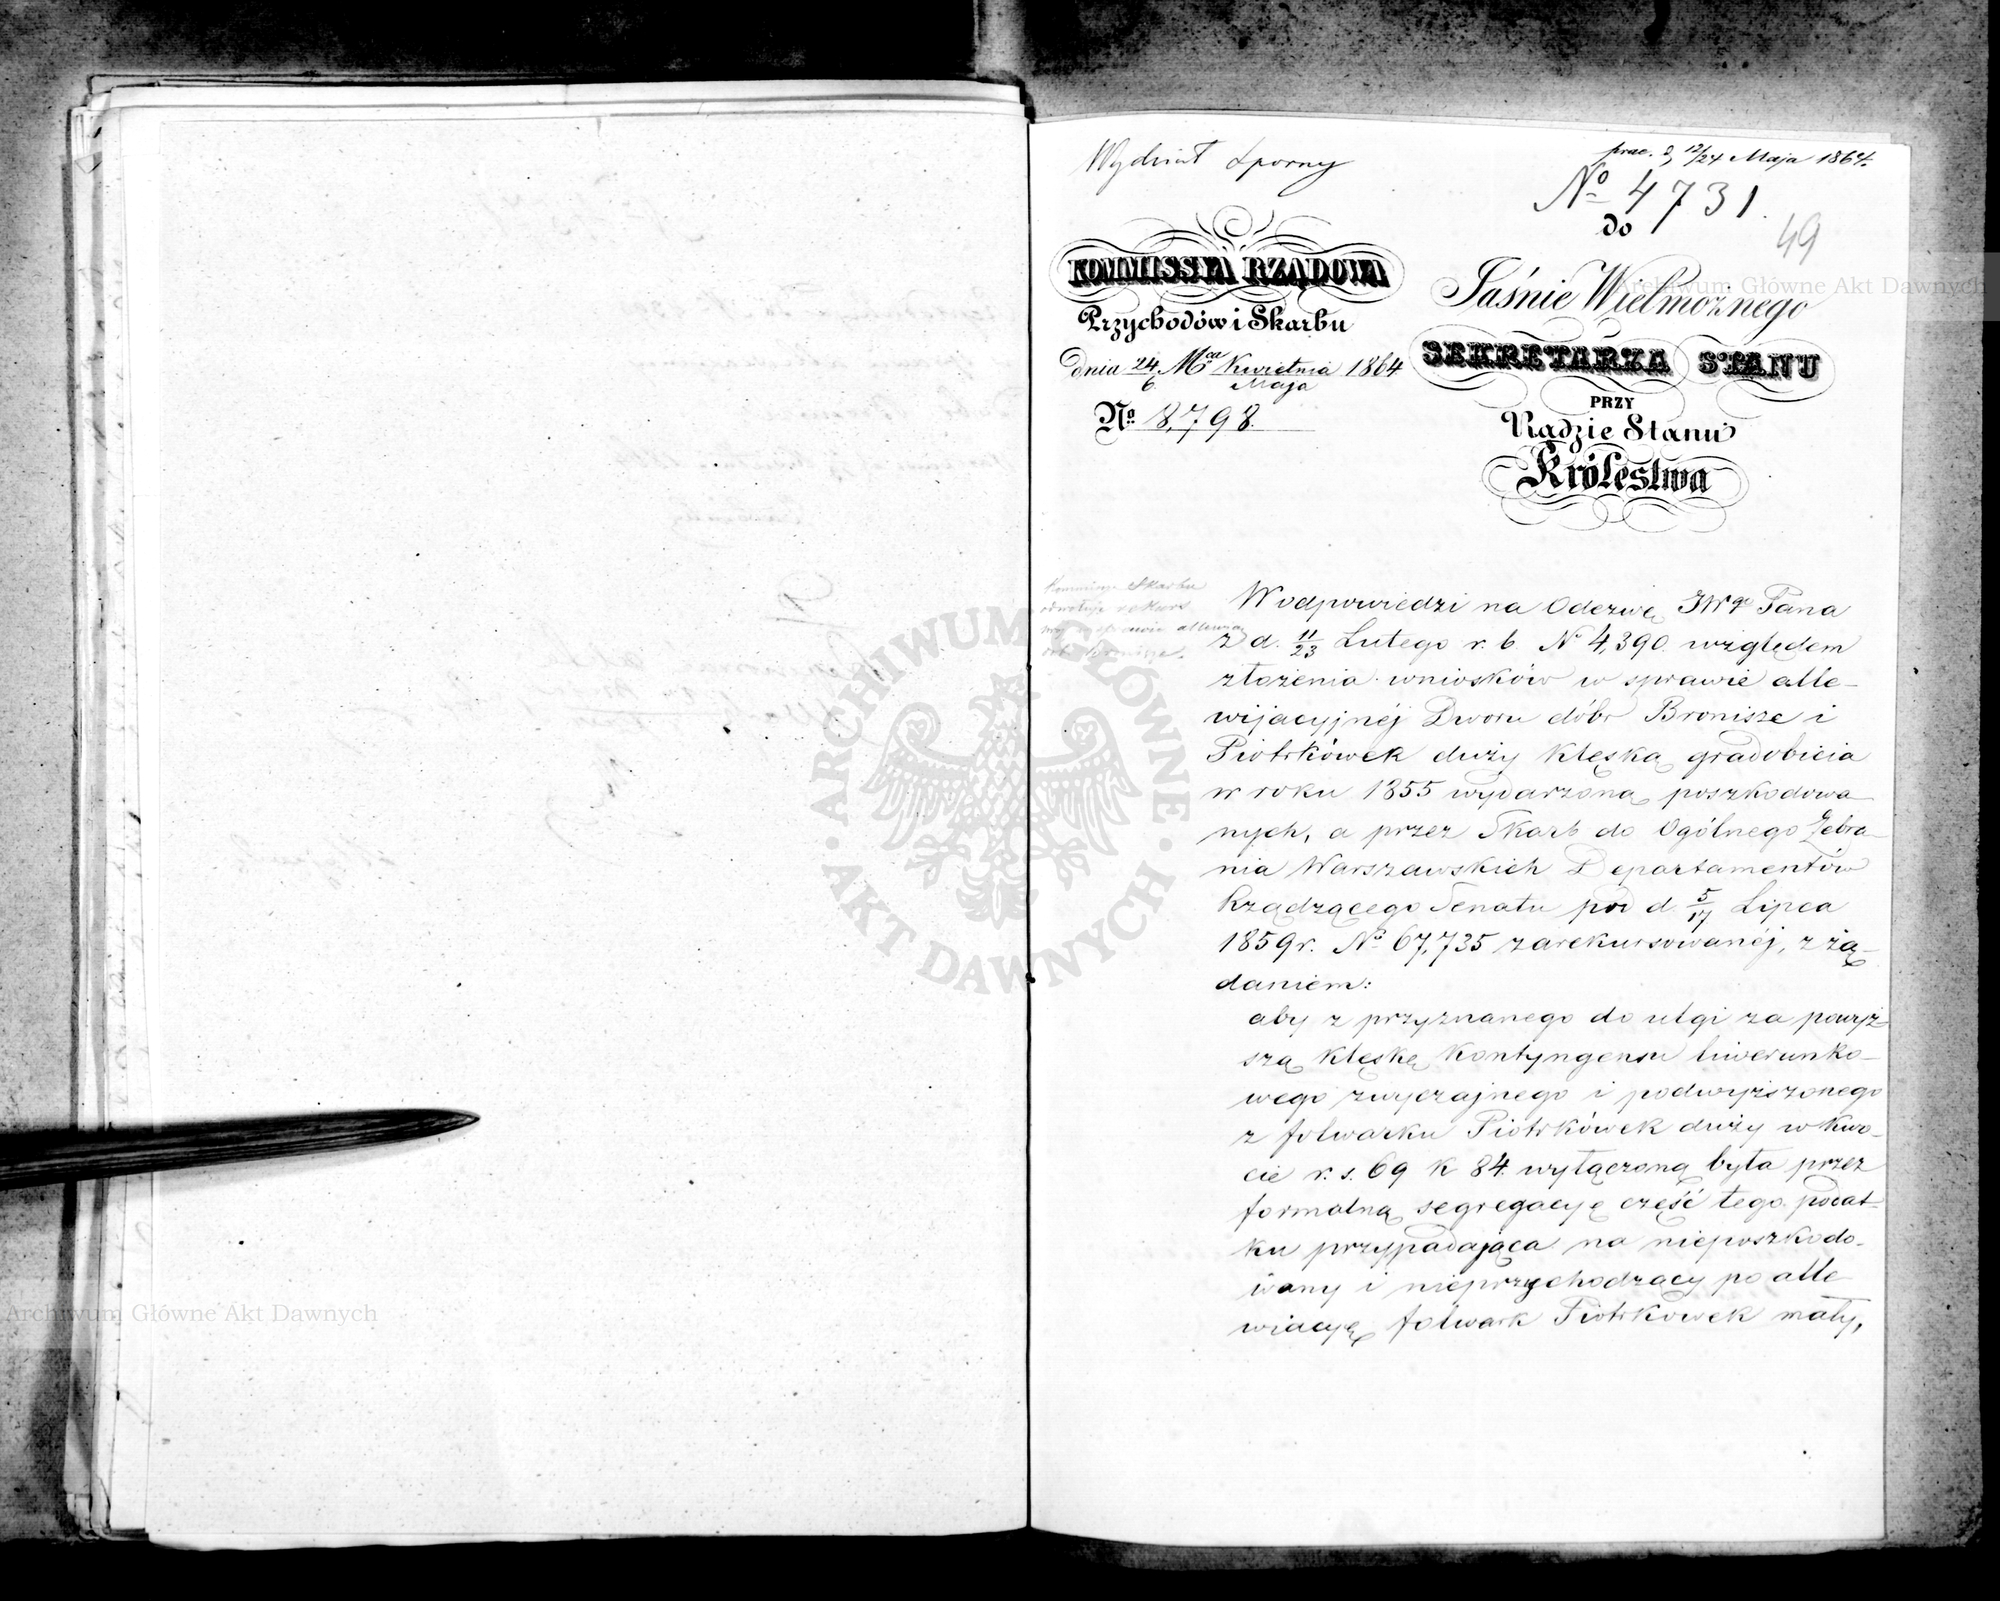 Wydział Sporny
prae. d. 12/24 Maja 1864.
No 4731.
do
49
KOMMISSYA RZĄDOWA
Przychodów i Skarbu
dnia 24/6 Mca Kwietnia/Maja 1864
No 8,798.
Jaśnie Wielmożnego
SEKRETARZA STANU
PRZY
Radzie Stanu
Królestwa
Kommissya Skarbu
odwołuje rekurs
w sprawie allewiac
dóbr Bronisze.
W odpowiedzi na Odezwę JWgo Pana
z d. 11/23 Lutego r. b. No 4,390. względem
złożenia wniosków w sprawie alle-
wijacyjnéj Dworu dóbr Bronisze i
Piotrkówek duży klęską gradobicia
w roku 1855 wydarzoną poszkodowa-
nych, a przez Skarb do Ogólnego Zebra-
nia Warszawskich Departamentów
Rządzącego Senatu pod d. 5/17 Lipca
1859 r. No 67,735 zarekursowanéj, z żą-
daniem:
aby z przyznanego do ulgi za powyż-
szą klęskę Kontyngensu liwerunko-
wego zwyczajnego i podwyższonego
z folwarku Piotrkówek duży w kwo-
cie r. s. 69 k 84. wyłączoną była przez
formalną segregacyę część tego podat-
ku przypadająca na nieposzkodo-
wany i nieprzychodzący po alle
wiacyę folwark Piotrkowek mały,
ARCHIWUM GŁÓWNE · AKT DAWNYCH ·
Archiwum Główne Akt Dawnych
Archiwum Główne Akt Dawnych